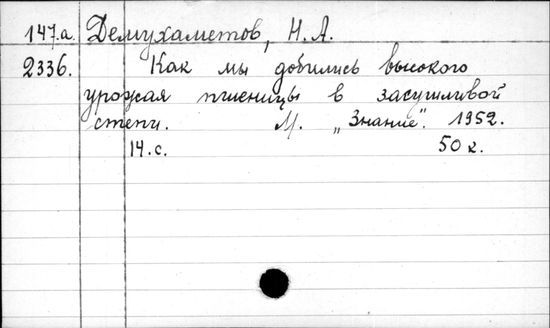 147.а. Демухаметов, Н. А.
2336. Как мы добились высокого
урожая пшеницы в засушливой
степи. М. „Знание". 1952.
14. с. 50 к.